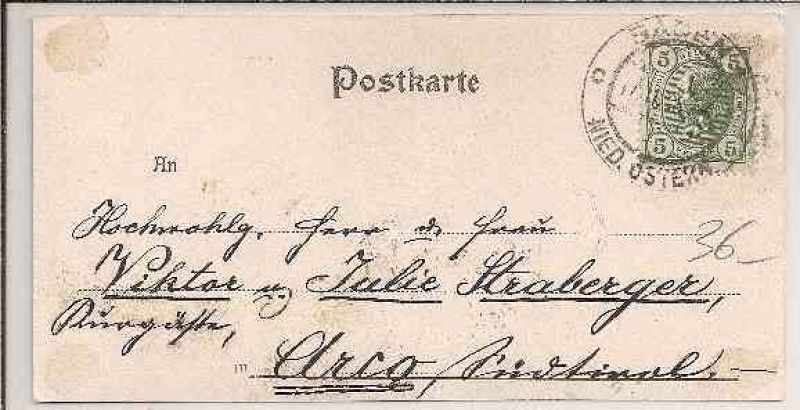 Postkarte
5 5
5 5
NIED. ÖSTERR.
An
Hochwohlg. Herr & Frau
Viktor u. Julie Straberger,
Kurgäste,
in Arco, Südtirol.—
36-